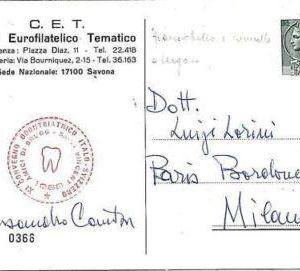 C. E. T.
Eurofilatelico Tematico
enza: Piazza Diaz, 11 - Tel. 22.418
eria: Via Bourniquez, 2-15 - Tel. 36.163
Sede Nazionale: 17100 Savona
XI CONVEGNO ODONTOIATRICO ITALO-SVIZZERO
AMICI DI BRUGG
Dott.
Luigi Lorini
Paris Bordone
Milano
0366